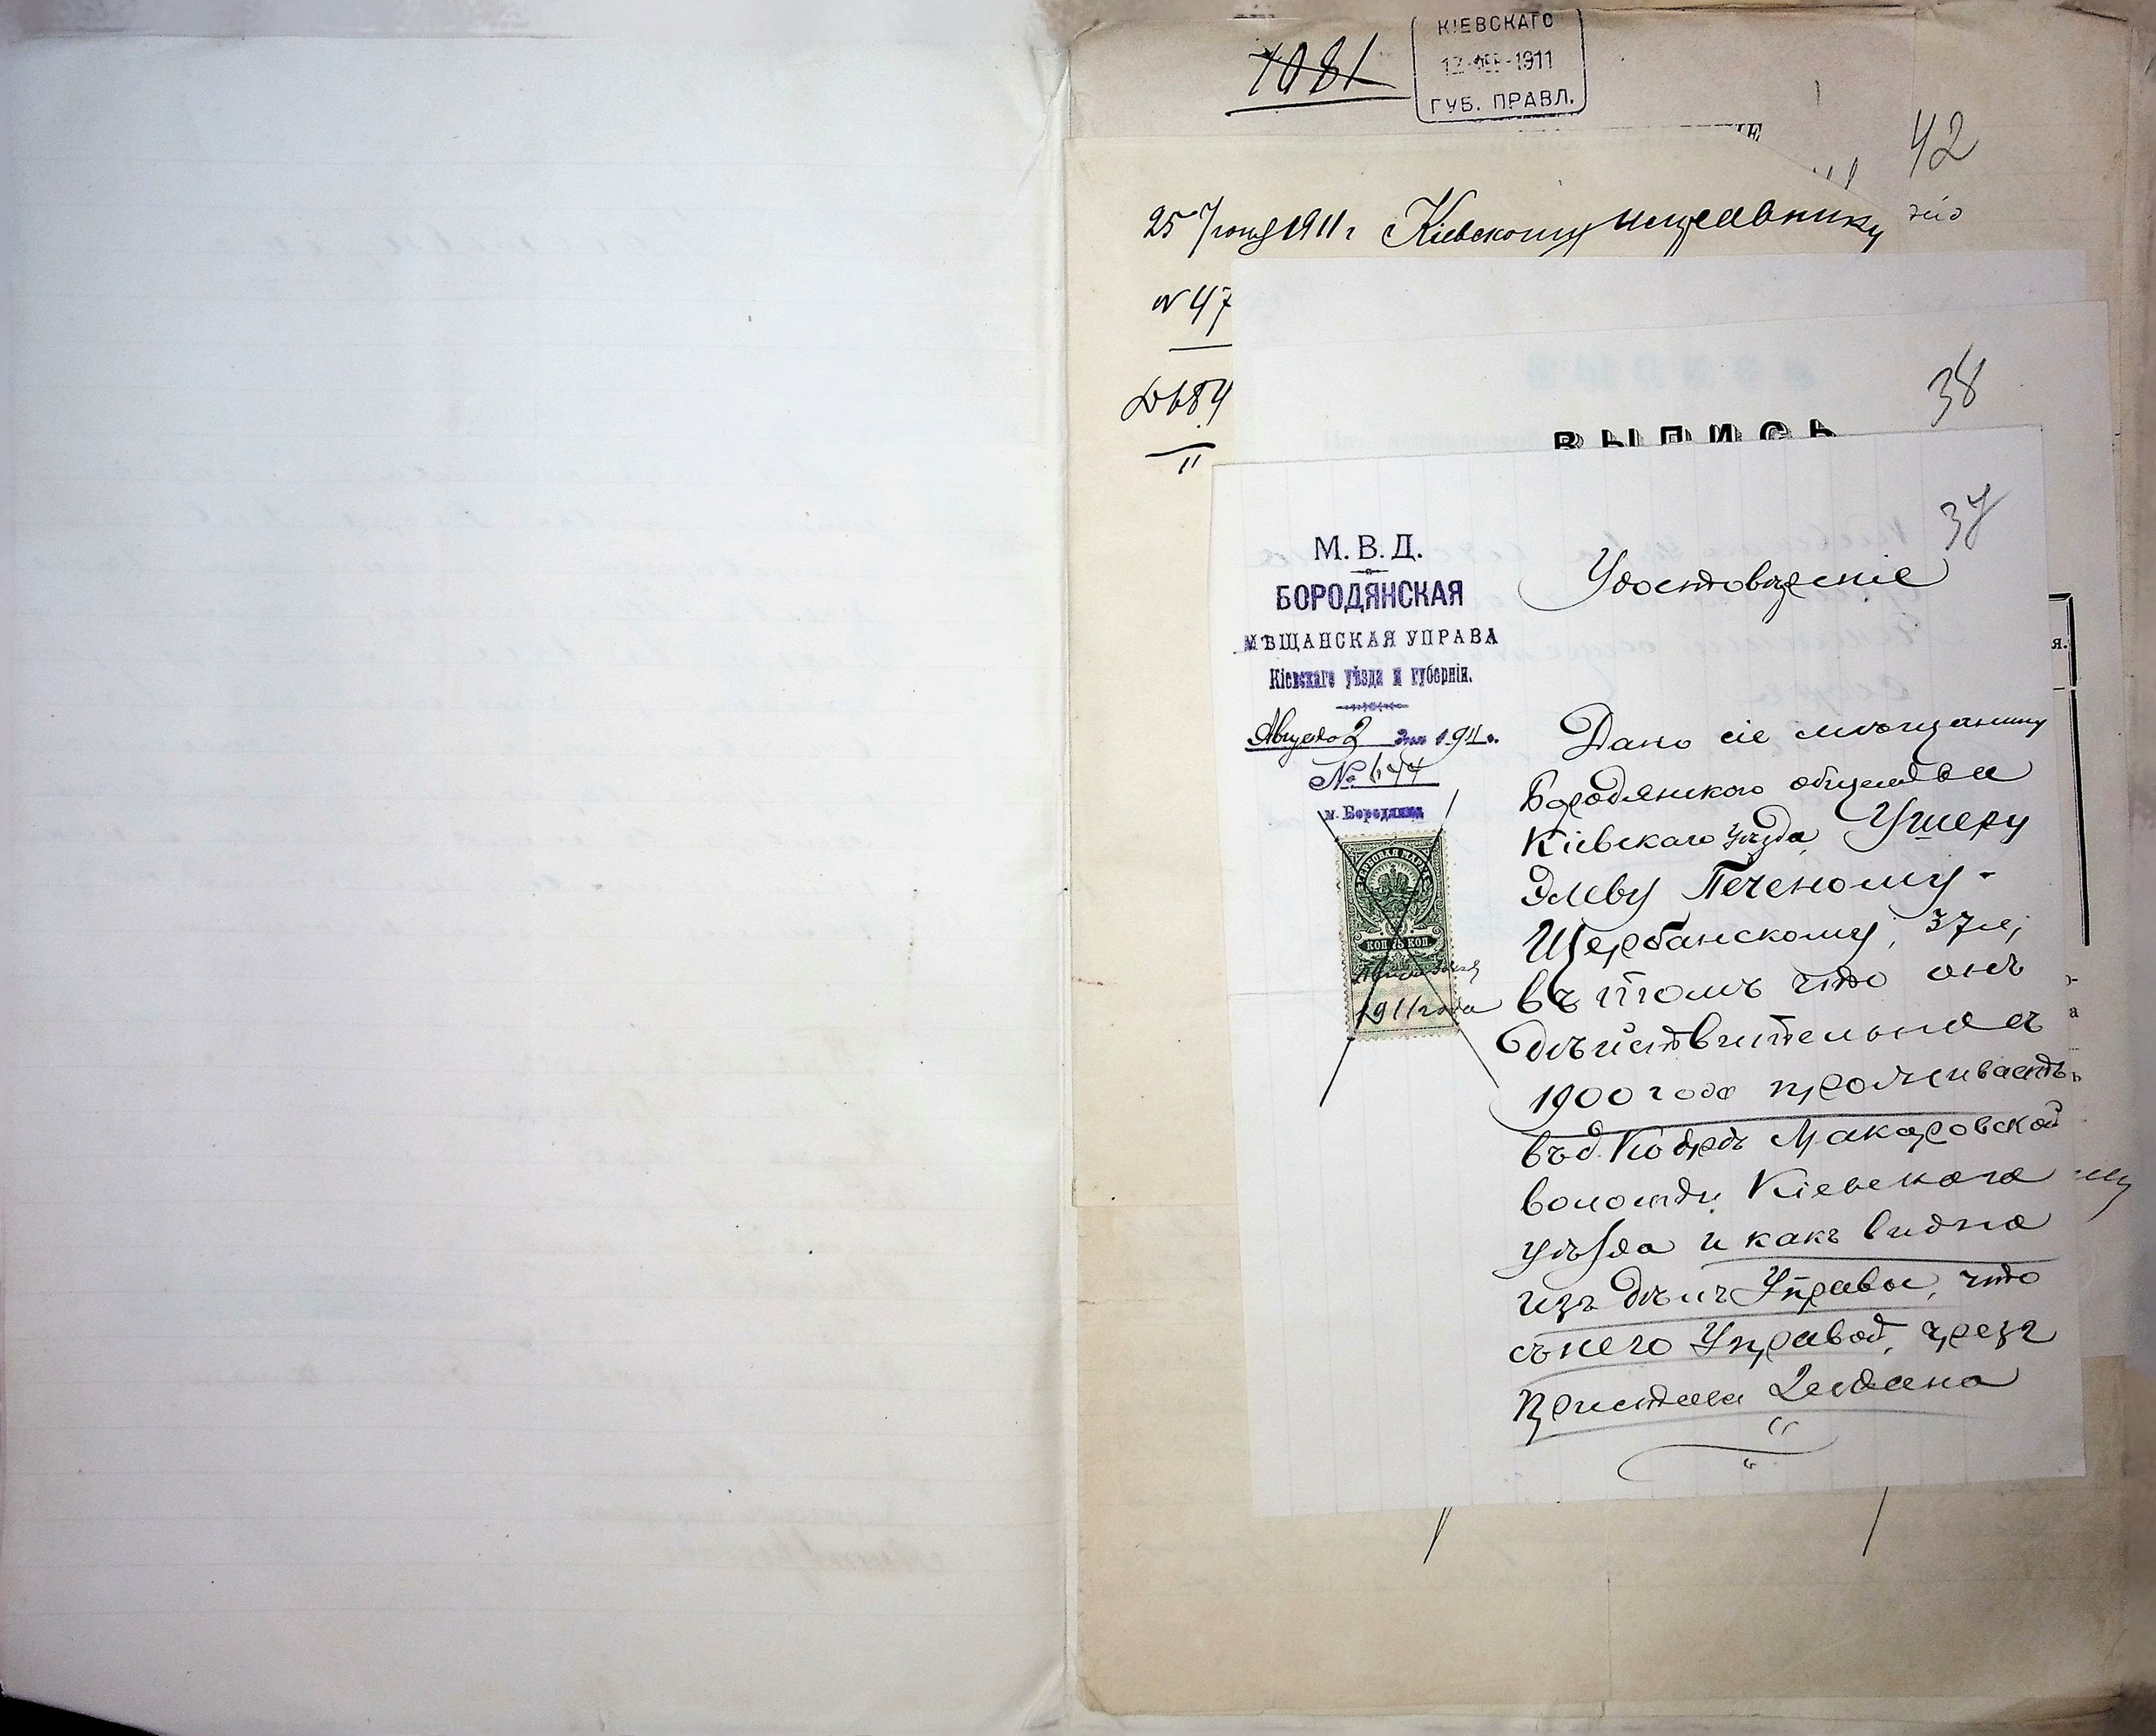 1081
КІЕВСКАГО
1911
ГУБ. ПРАВЛ.
42
25 Іюня 1911 г Кіевскому исправнику
№ 47
38
ВЫПИСЬ
37
М. В. Д.
БОРОДЯНСКАЯ
МѢЩАНСКАЯ УПРАВА
Кіевскаго уѣзда и губерніи.
Августа 2 дня 1911 г.
№ 644
м. Бородянка
КОП КОП.
1911 года
Удостовѣреніе
Дано сіе мѣщанину
Бородянскаго общества
Кіевскаго уѣзда, Ушеру
Элеву Печеному-
Щербанскому, 37 л,
въ томъ что онъ
дѣйствительно съ
1900 года проживаетъ
въ д. Кодрѣ Макаровской
волости Кіевскаго
уѣзда и какъ видно
изъ дѣлъ Управы, что
съ него Управой, чрезъ
Пристава 2 стана
я.